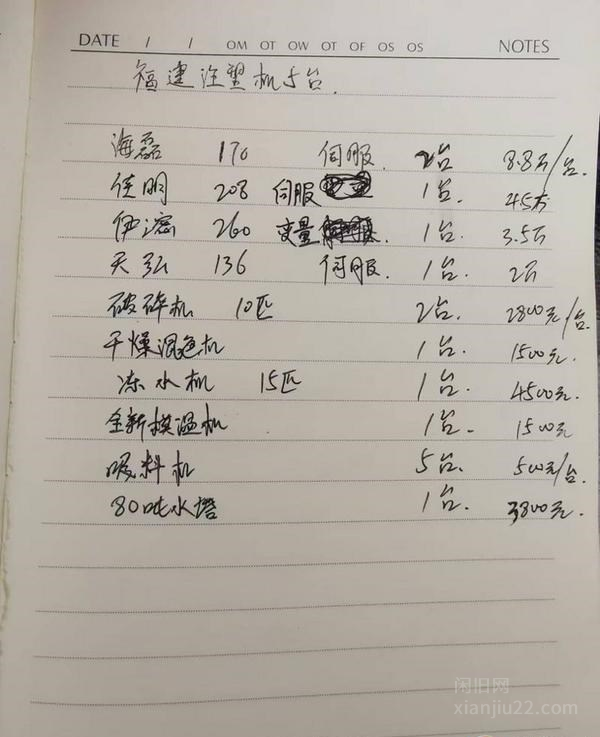 DATE / / OM OT OW OT OF OS OS NOTES
福建注塑机5台.
海磊 170 伺服. 2台 8.8万/台.
佳明 208 伺服 1台. 4.5万
伊漉 260 变量 1台. 3.5万
天弘 136 伺服. 1台. 2万
破碎机 10匹 2台. 2800元/台.
干燥混色机 1台. 1500元.
冻水机 15匹 1台. 4500元.
全新模温机 1台. 1500元
吸料机 5台. 500元/台.
80吨水塔 1台. 3800元.
闲旧网
xianjiu22.com